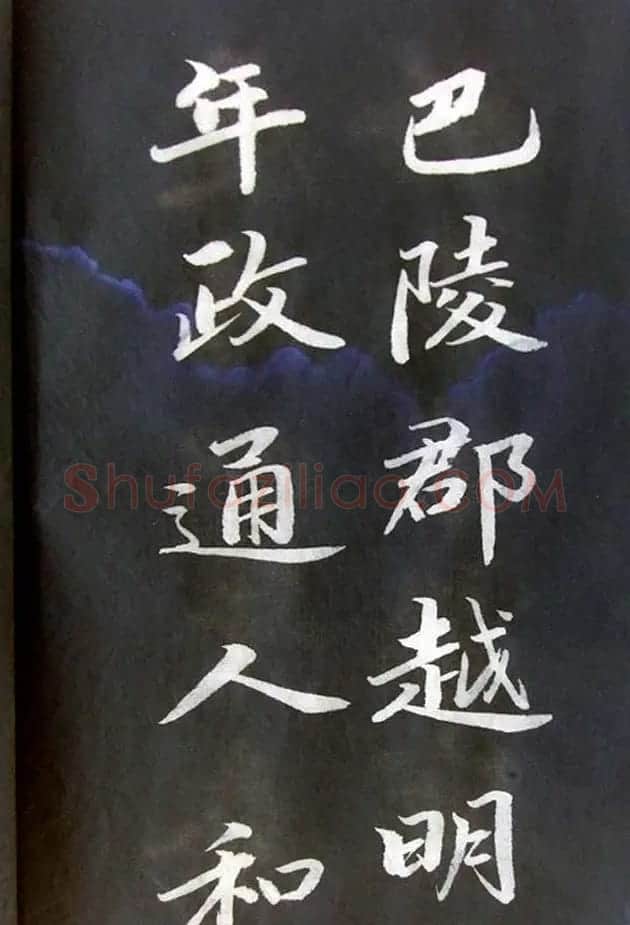 巴陵郡越明
年政通人和
Shufaziliao.COM